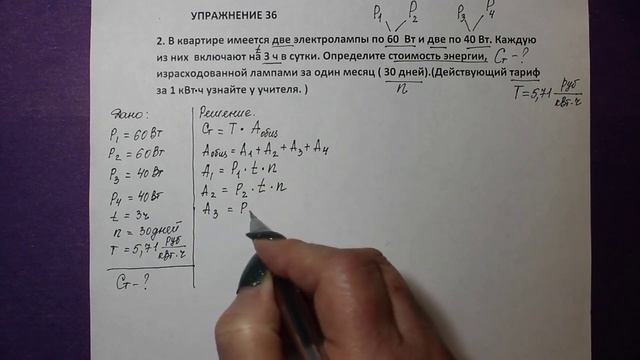 УПРАЖНЕНИЕ 36
P₁ P₂ P₃ P₄
2. В квартире имеется две электролампы по 60 Вт и две по 40 Вт. Каждую
t
из них включают на 3 ч в сутки. Определите стоимость энергии, Ст - ?
израсходованной лампами за один месяц ( 30 дней).(Действующий тариф
n
за 1 кВт·ч узнайте у учителя. )
T = 5,71 руб/кВт·ч
Дано:
P₁ = 60 Вт
P₂ = 60 Вт
P₃ = 40 Вт
P₄ = 40 Вт
t = 3ч
n = 30 дней
T = 5,71 руб/кВт·ч
Ст - ?
Решение.
Ст = T · Aобщ
Aобщ = A₁ + A₂ + A₃ + A₄
A₁ = P₁ · t · n
A₂ = P₂ · t · n
A₃ = P